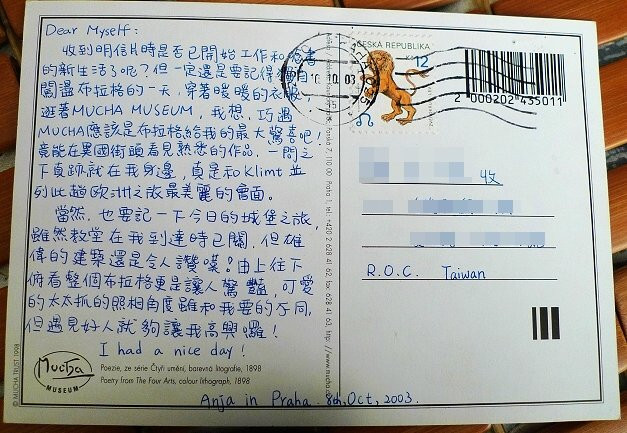 Dear Myself:
收到明信片時是否已開始工作和念書
的新生活了呢?但一定還是要記得獨自
闖蕩布拉格的一天,穿著暖暖的衣服,
逛著MUCHA MUSEUM,我想,巧遇
MUCHA應該是布拉格給我的最大驚喜吧!
竟能在異國街頭看見熟悉的作品,一問之
下真跡就在我身邊,真是和Klimt並
列此趟歐洲之旅最美麗的會面。
當然,也要記一下今日的城堡之旅,
雖然教堂在我到達時已關,但雄
偉的建築還是令人讚嘆!由上往下
俯看整個布拉格更是讓人驚豔,可愛
的太太抓的照相角度雖和我要的不同,
但遇見好人就夠讓我高興囉!
I had a nice day!
Mucha
MUSEUM
Poezie, ze série Čtyři umění, barevná litografie, 1898
Poetry from The Four Arts, colour lithograph, 1898
© MUCHA TRUST 1998
Anja in Praha 8th, Oct, 2003.
ČESKÁ REPUBLIKA
Kč 12
10.03
2 000202 435011
收
R.O.C. Taiwan
Panská 7, 110 00 Praha 1, tel. +420 2 628 41 62, fax. 628 41 61, http://www.mucha